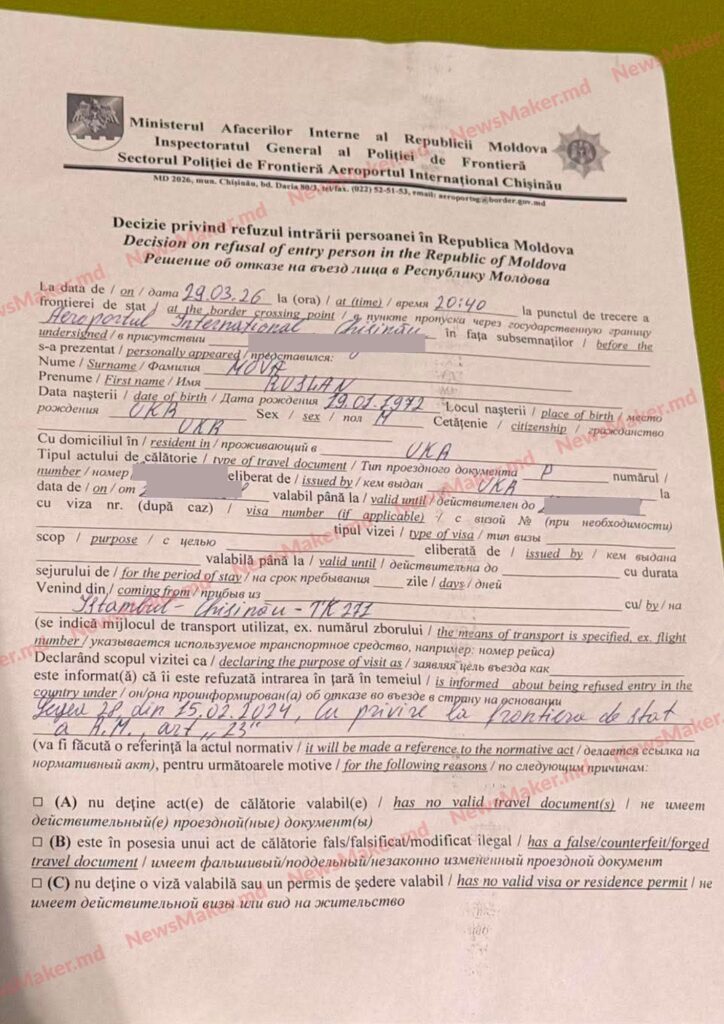 Ministerul Afacerilor Interne al Republicii Moldova
Inspectoratul General al Poliției de Frontieră
Sectorul Poliției de Frontieră Aeroportul Internațional Chișinău
MD 2026, mun. Chișinău, bd. Dacia 80/3, tel/fax. (022) 52-51-53, email: aeroportsg@border.gov.md
Decizie privind refuzul intrării persoanei în Republica Moldova
Decision on refusal of entry person in the Republic of Moldova
Решение об отказе на въезд лица в Республику Молдова
La data de / on / дата 29.03.26 la (ora) / at (time) / время 20:40 la punctul de trecere a
frontierei de stat / at the border crossing point / в пункте пропуска через государственную границу
Aeroportul International Chisinău în fața subsemnaților / before the
undersigned / в присутствии
s-a prezentat / personally appeared / представился:
Nume / Surname / Фамилия MOVA
Prenume / First name / Имя RUSLAN
Data nașterii / date of birth / Дата рождения 19.01.1972 Locul nașterii / place of birth / место
рождения UKR Sex / sex / пол M Cetățenie / citizenship / гражданство
UKR
Cu domiciliul în / resident in / проживающий в UKR
Tipul actului de călătorie / type of travel document / Тип проездного документа P numărul /
number / номер eliberat de / issued by / кем выдан UKR la
data de / on / от valabil până la / valid until / действителен до
cu viza nr. (după caz) / visa number (if applicable) / с визой № (при необходимости)
tipul vizei / type of visa / тип визы
scop / purpose / с целью eliberată de / issued by / кем выдана
valabilă până la / valid until / действительна до cu durata
sejurului de / for the period of stay / на срок пребывания zile / days / дней
Venind din / coming from / прибыв из cu/ by / на
Istambul - Chisinău - TK 271
(se indică mijlocul de transport utilizat, ex. numărul zborului / the means of transport is specified, ex. flight
number / указывается используемое транспортное средство, например: номер рейса)
Declarând scopul vizitei ca / declaring the purpose of visit as / заявляя цель въезда как
este informat(ă) că îi este refuzată intrarea în țară în temeiul / is informed about being refused entry in the
country under / он/она проинформирован(а) об отказе во въезде в страну на основании
Legea 28 din 15.02.2024, cu privire la frontiera de stat
a R.M., art „23"
(va fi făcută o referință la actul normativ / it will be made a reference to the normative act / делается ссылка на
нормативный акт), pentru următoarele motive / for the following reasons / по следующим причинам:
☐ (A) nu deține act(e) de călătorie valabil(e) / has no valid travel document(s) / не имеет
действительный(е) проездной(ные) документ(ы)
☐ (B) este în posesia unui act de călătorie fals/falsificat/modificat ilegal / has a false/counterfeit/forged
travel document / имеет фальшивый/поддельный/незаконно измененный проездной документ
☐ (C) nu deține o viză valabilă sau un permis de ședere valabil / has no valid visa or residence permit / не
имеет действительной визы или вид на жительство
NewsMaker.md